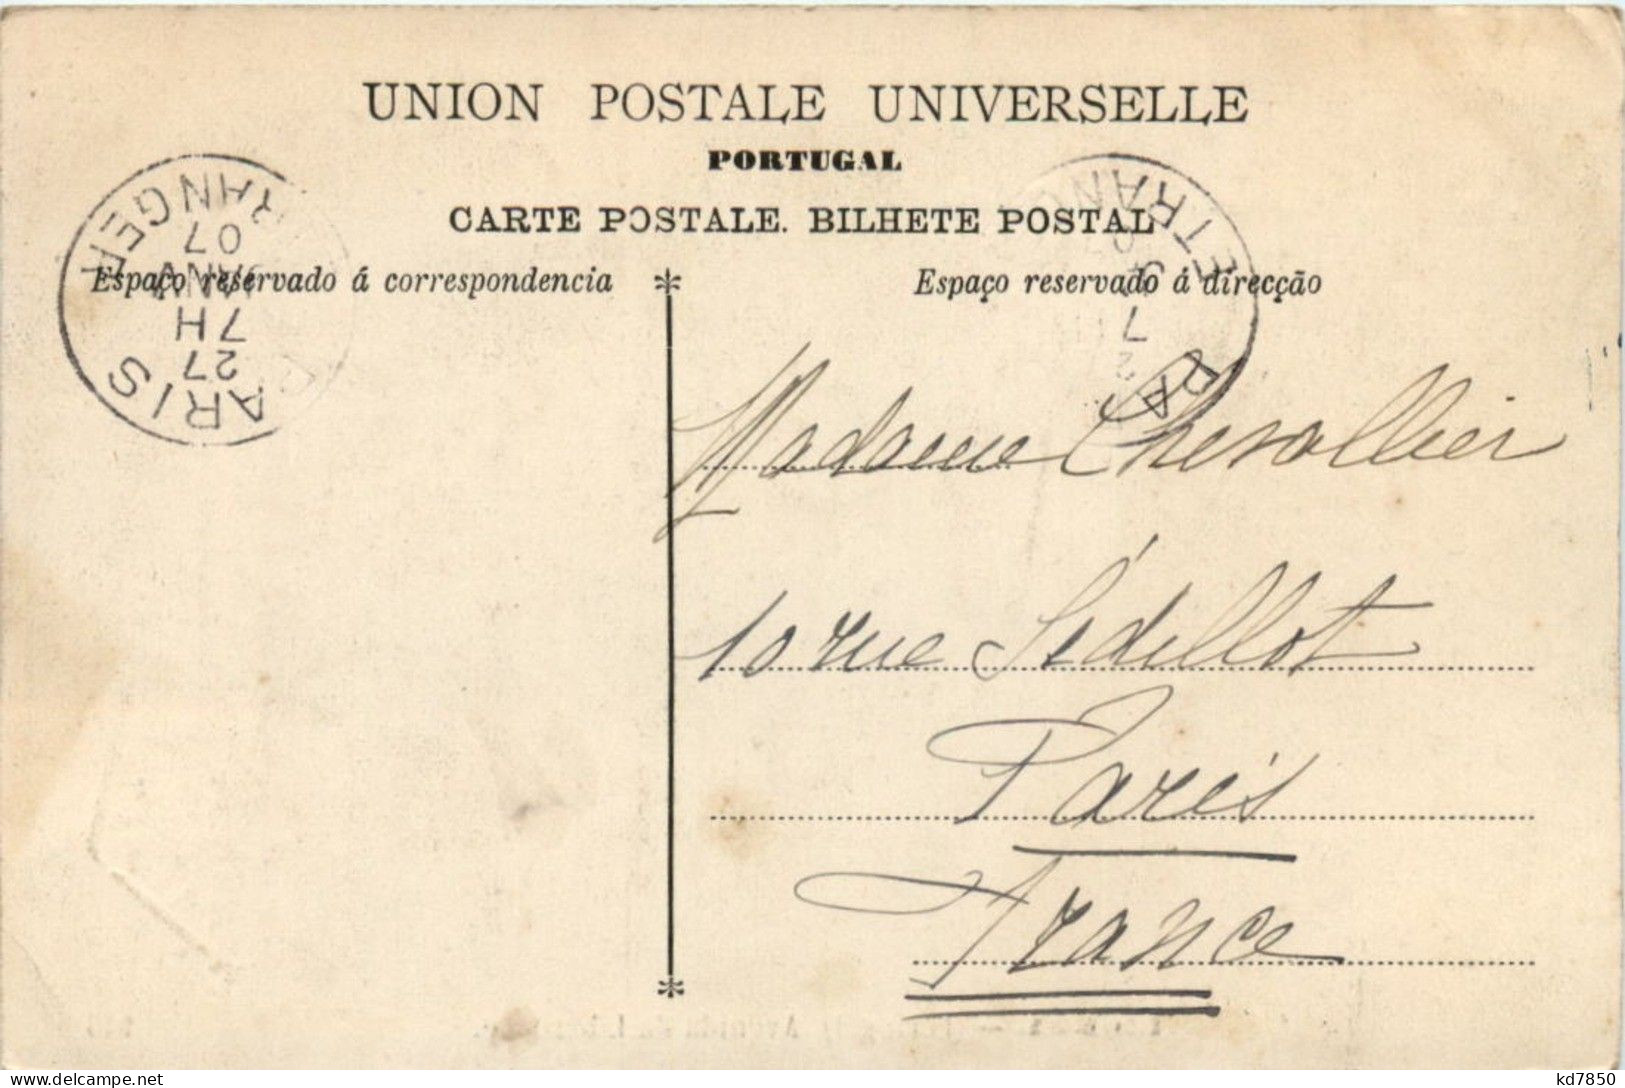 UNION POSTALE UNIVERSELLE
PORTUGAL
CARTE POSTALE. BILHETE POSTAL
Espaço reservado á correspondencia
Espaço reservado á direcção
PARIS
27
7H
07
ETRANGER
PA
7
ETRANG
Madame Chevallier
10 rue Sédillot
Paris
France
kd7850